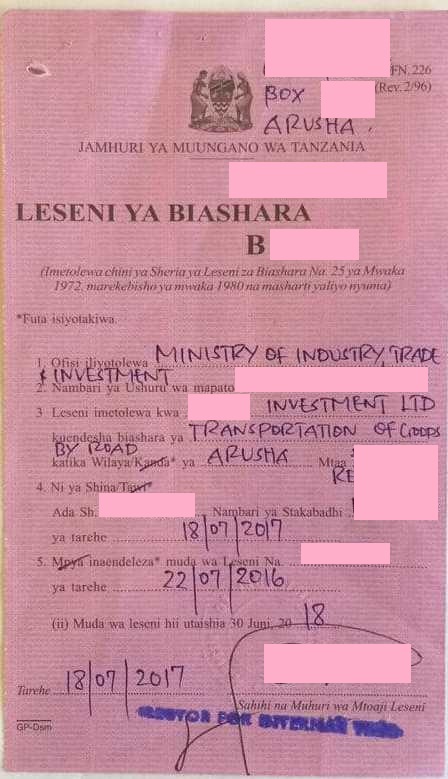 FN. 226
(Rev. 2/96)
BOX
ARUSHA.
JAMHURI YA MUUNGANO WA TANZANIA
LESENI YA BIASHARA
B
(Imetolewa chini ya Sheria ya Leseni za Biashara Na. 25 ya Mwaka
1972, marekebisho ya mwaka 1980 na masharti yaliyo nyuma)
*Futa isiyotakiwa.
1. Ofisi iliyotolewa MINISTRY OF INDUSTRY, TRADE
& INVESTMENT
2. Nambari ya Ushuru wa mapato
3 Leseni imetolewa kwa INVESTMENT LTD
kuendesha biashara ya TRANSPORTATION OF GOODS
BY ROAD
katika Wilaya/Kanda* ya ARUSHA Mtaa
4. Ni ya Shina/Tawi*
Ada Sh. Nambari ya Stakabadhi
ya tarehe 18/07/2017
5. Mpya inaendeleza* muda wa Leseni Na.
ya tarehe 22/07/2016
(ii) Muda wa leseni hii utaishia 30 Juni, 2018
Tarehe 18/07/2017
Sahihi na Muhuri wa Mtoaji Leseni
FOR INTERNAL
GP-Dsm